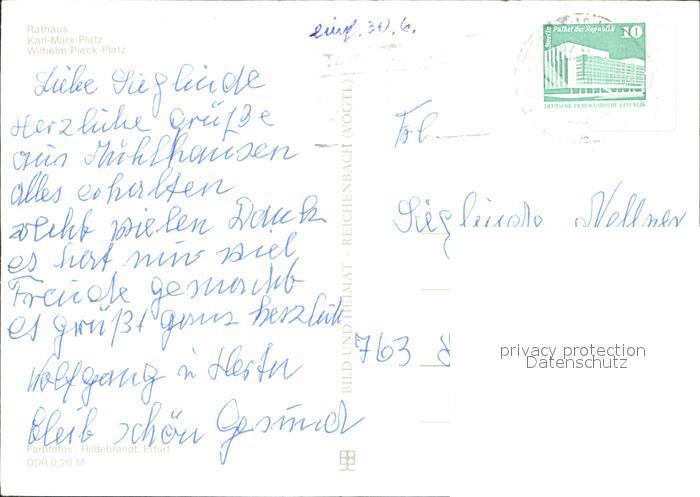 Rathaus
Karl-Marx-Platz
Wilhelm-Pieck-Platz
eing. 30.6.
Liebe Sieglinde
Herzliche Grüße
aus Mühlhausen
alles erhalten
recht vielen Dank
es hat mir viel
Freude gemacht
es grüßt ganz herzlich
Wolfgang u
bleib schön Gesund
Farbfotos: Hildebrandt, Erfurt
DDR 0,20 M
BILD UND HEIMAT · REICHENBACH (VOGTL)
Berlin Palast der Republik 10
DEUTSCHE DEMOKRATISCHE REPUBLIK
Frl
Sieglinde
763
privacy protection
Datenschutz